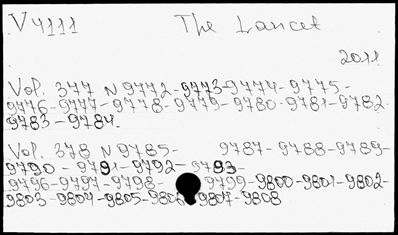 V 4111 The Lancet
2011
Vol. 377 N 9772-9773-9774-9775-
9776-9777-9778-9779-9780-9781-9782
9783-9784.
Vol. 378 N 9785- 9787-9788-9789-
9790-9791-9792-9793-
9796-9797-9798- 9799-9800-9801-9802-
9803-9804-9805-9806-9807-9808